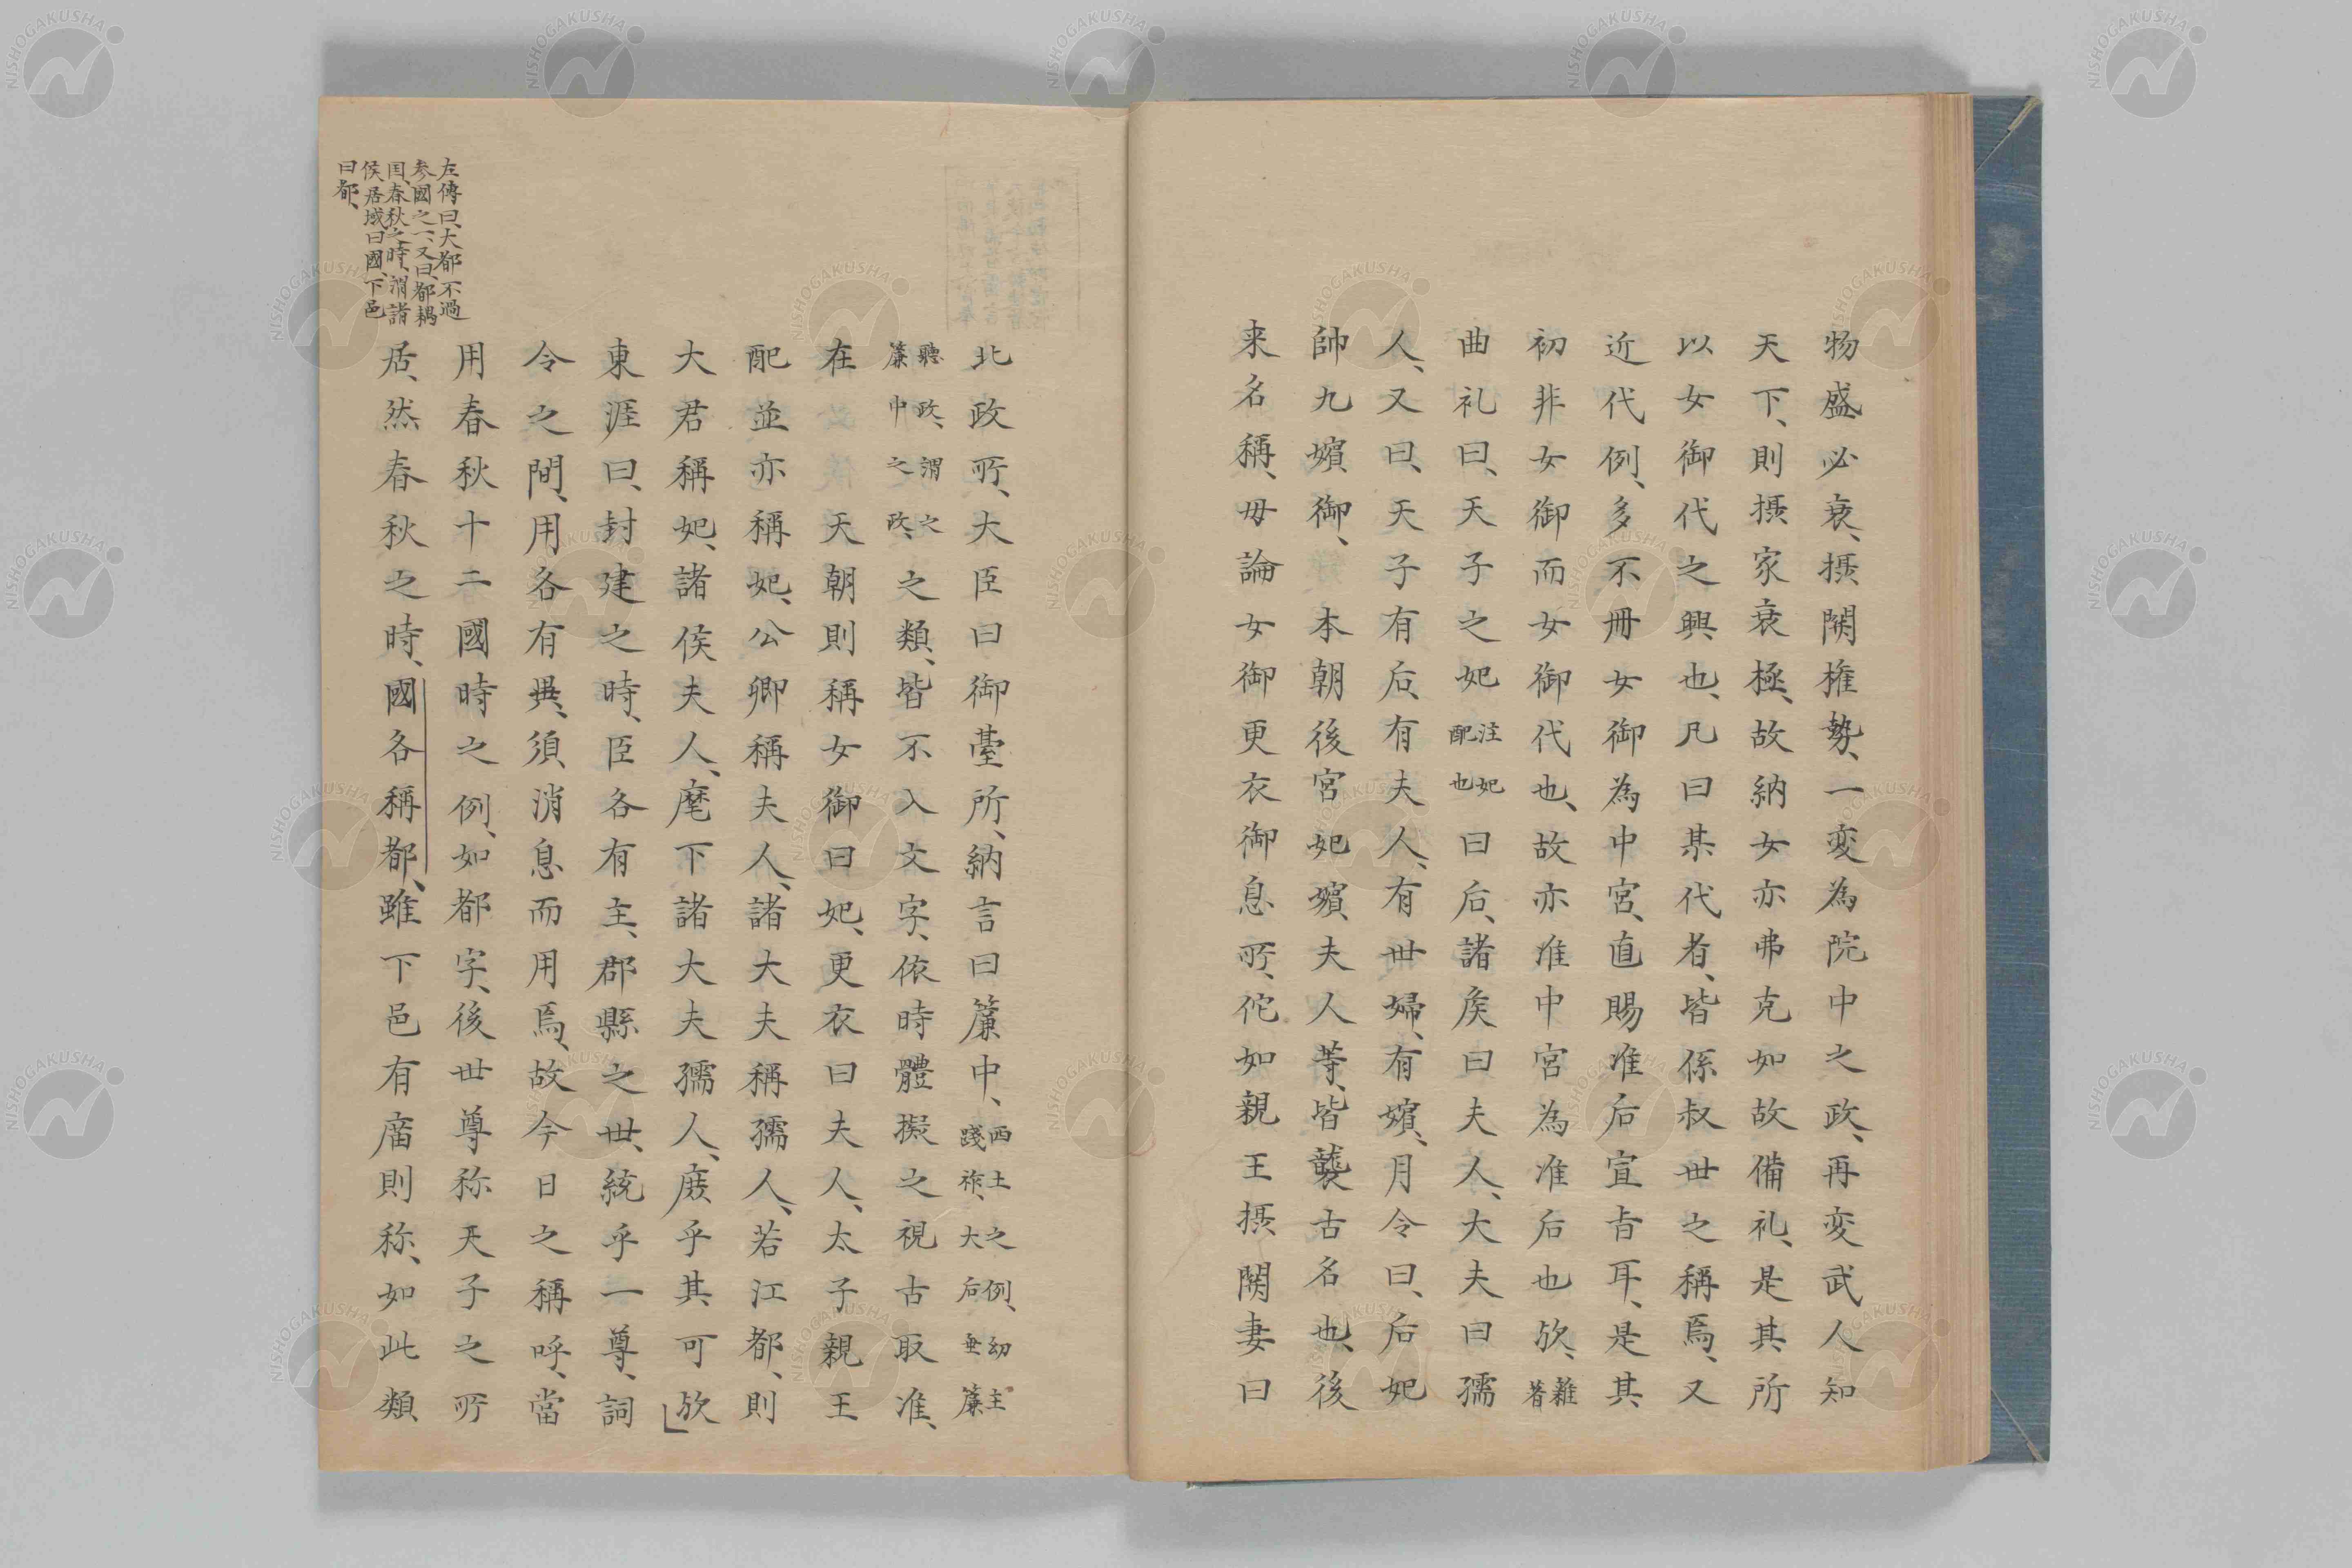 物盛必衰、摂関権勢、一変為院中之政、再変武人知
天下、則摂家衰極、故納女亦弗克如故備礼、是其所
以女御代之興也、凡曰某代者、皆係叔世之稱焉、又
近代例、多不冊女御為中宮、直賜准后宣旨耳、是其
初非女御而女御代也、故亦准中宮為准后也欤、雜著
曲礼曰、天子之妃注妃配也曰后、諸侯曰夫人、大夫曰孺
人、又曰、天子有后、有夫人、有世婦、有嬪、月令曰、后妃
帥九嬪御、本朝後宮妃嬪、夫人等、皆襲古名也、後
来名稱、毋論女御更衣御息所、佗如親王摂関妻曰
北政所、大臣曰御臺所、納言曰簾中、西土之例、幼主踐祚、大后垂簾
聽政、謂之簾中之政、之類、皆不入文字、依時體擬之視古取准、
在天朝則稱女御曰妃、更衣曰夫人、太子親王
配並亦稱妃、公卿稱夫人、諸大夫稱孺人、若江都、則
大君稱妃、諸侯夫人、麾下諸大夫孺人、庶乎其可欤」
東涯曰、封建之時、臣各有主、郡縣之世、統乎一尊、詞
令之間、用各有異、須消息而用焉、故今日之稱呼、當
用春秋十二國時之例、如都字、後世尊称天子之所
居、然春秋之時、國各稱都、雖下邑有廟則称、如此類
左傳曰、大都不過
参國之一、又曰、都耦
国、春秋之時、謂諸
侯居城曰國、下邑
曰都、
NISHOGAKUSHA